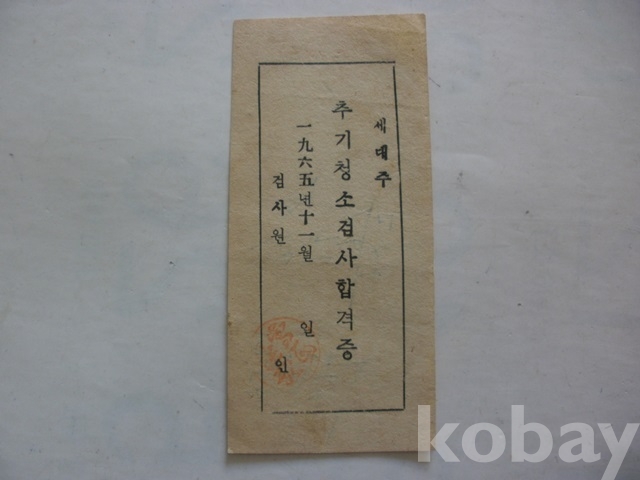 세대주
추기청소검사합격증
一九六五년十一월 일
검사원 인
kobay